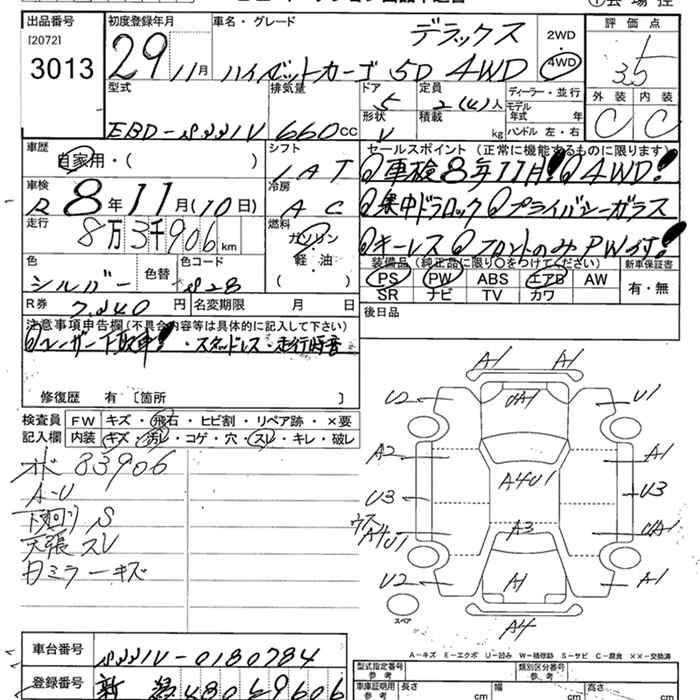 出品番号
[2072]
3013
初度登録年月
29 11月
車名・グレード
デラックス
ハイゼットカーゴ 5D 4WD
2WD
4WD
評価点
3.5
外装 内装
C C
型式
EBD-S331V
排気量
660cc
ドア
5
形状
V
定員
2(4)人
積載
kg
ディーラー・並行
モデル年式 年
ハンドル 左・右
車歴
自家用・( )
シフト
IAT
セールスポイント (正常に機能するものに限ります)
車検8年11月! 4WD!
集中ドアロック プライバシーガラス
キーレス フロントのみPWです!
車検
R 8年11月(10日)
冷房
AC
走行
8万3千906km
燃料
ガソリン
軽・油
( )
色
シルバー
色替
色コード
S28
装備品 (純正品に限り○をつけてください)
PS PW ABS エアB AW
SR ナビ TV カワ
新車保証書
有・無
R券
7,240円
名変期限 月 日
後日品
注意事項申告欄 (不具合内容等は具体的に記入して下さい)
ユーザー下取車! ・スタッドレス・走行時音
修復歴 有 〔箇所 〕
検査員 FW キズ・飛石・ヒビ割・リペア跡・×要
記入欄 内装 キズ・汚レ・コゲ・穴・スレ・キレ・破レ
83906
A-U
下廻り S
天張 スレ
ミラーキズ
A1 A1
U2 U1
A1
A2 A1
A4U1
U3 U3
ウス A4U1
A3
U2 A1 A1
A4
スペア
A-キズ E-エクボ U-凹み W-補修跡 S-サビ C-腐食 ××-交換済
車台番号
S331V-0180784
登録番号
480 9606
型式指定番号
参考
類別区分番号
参考
車庫証明用
参考
長さ
cm
幅
cm
高さ
cm